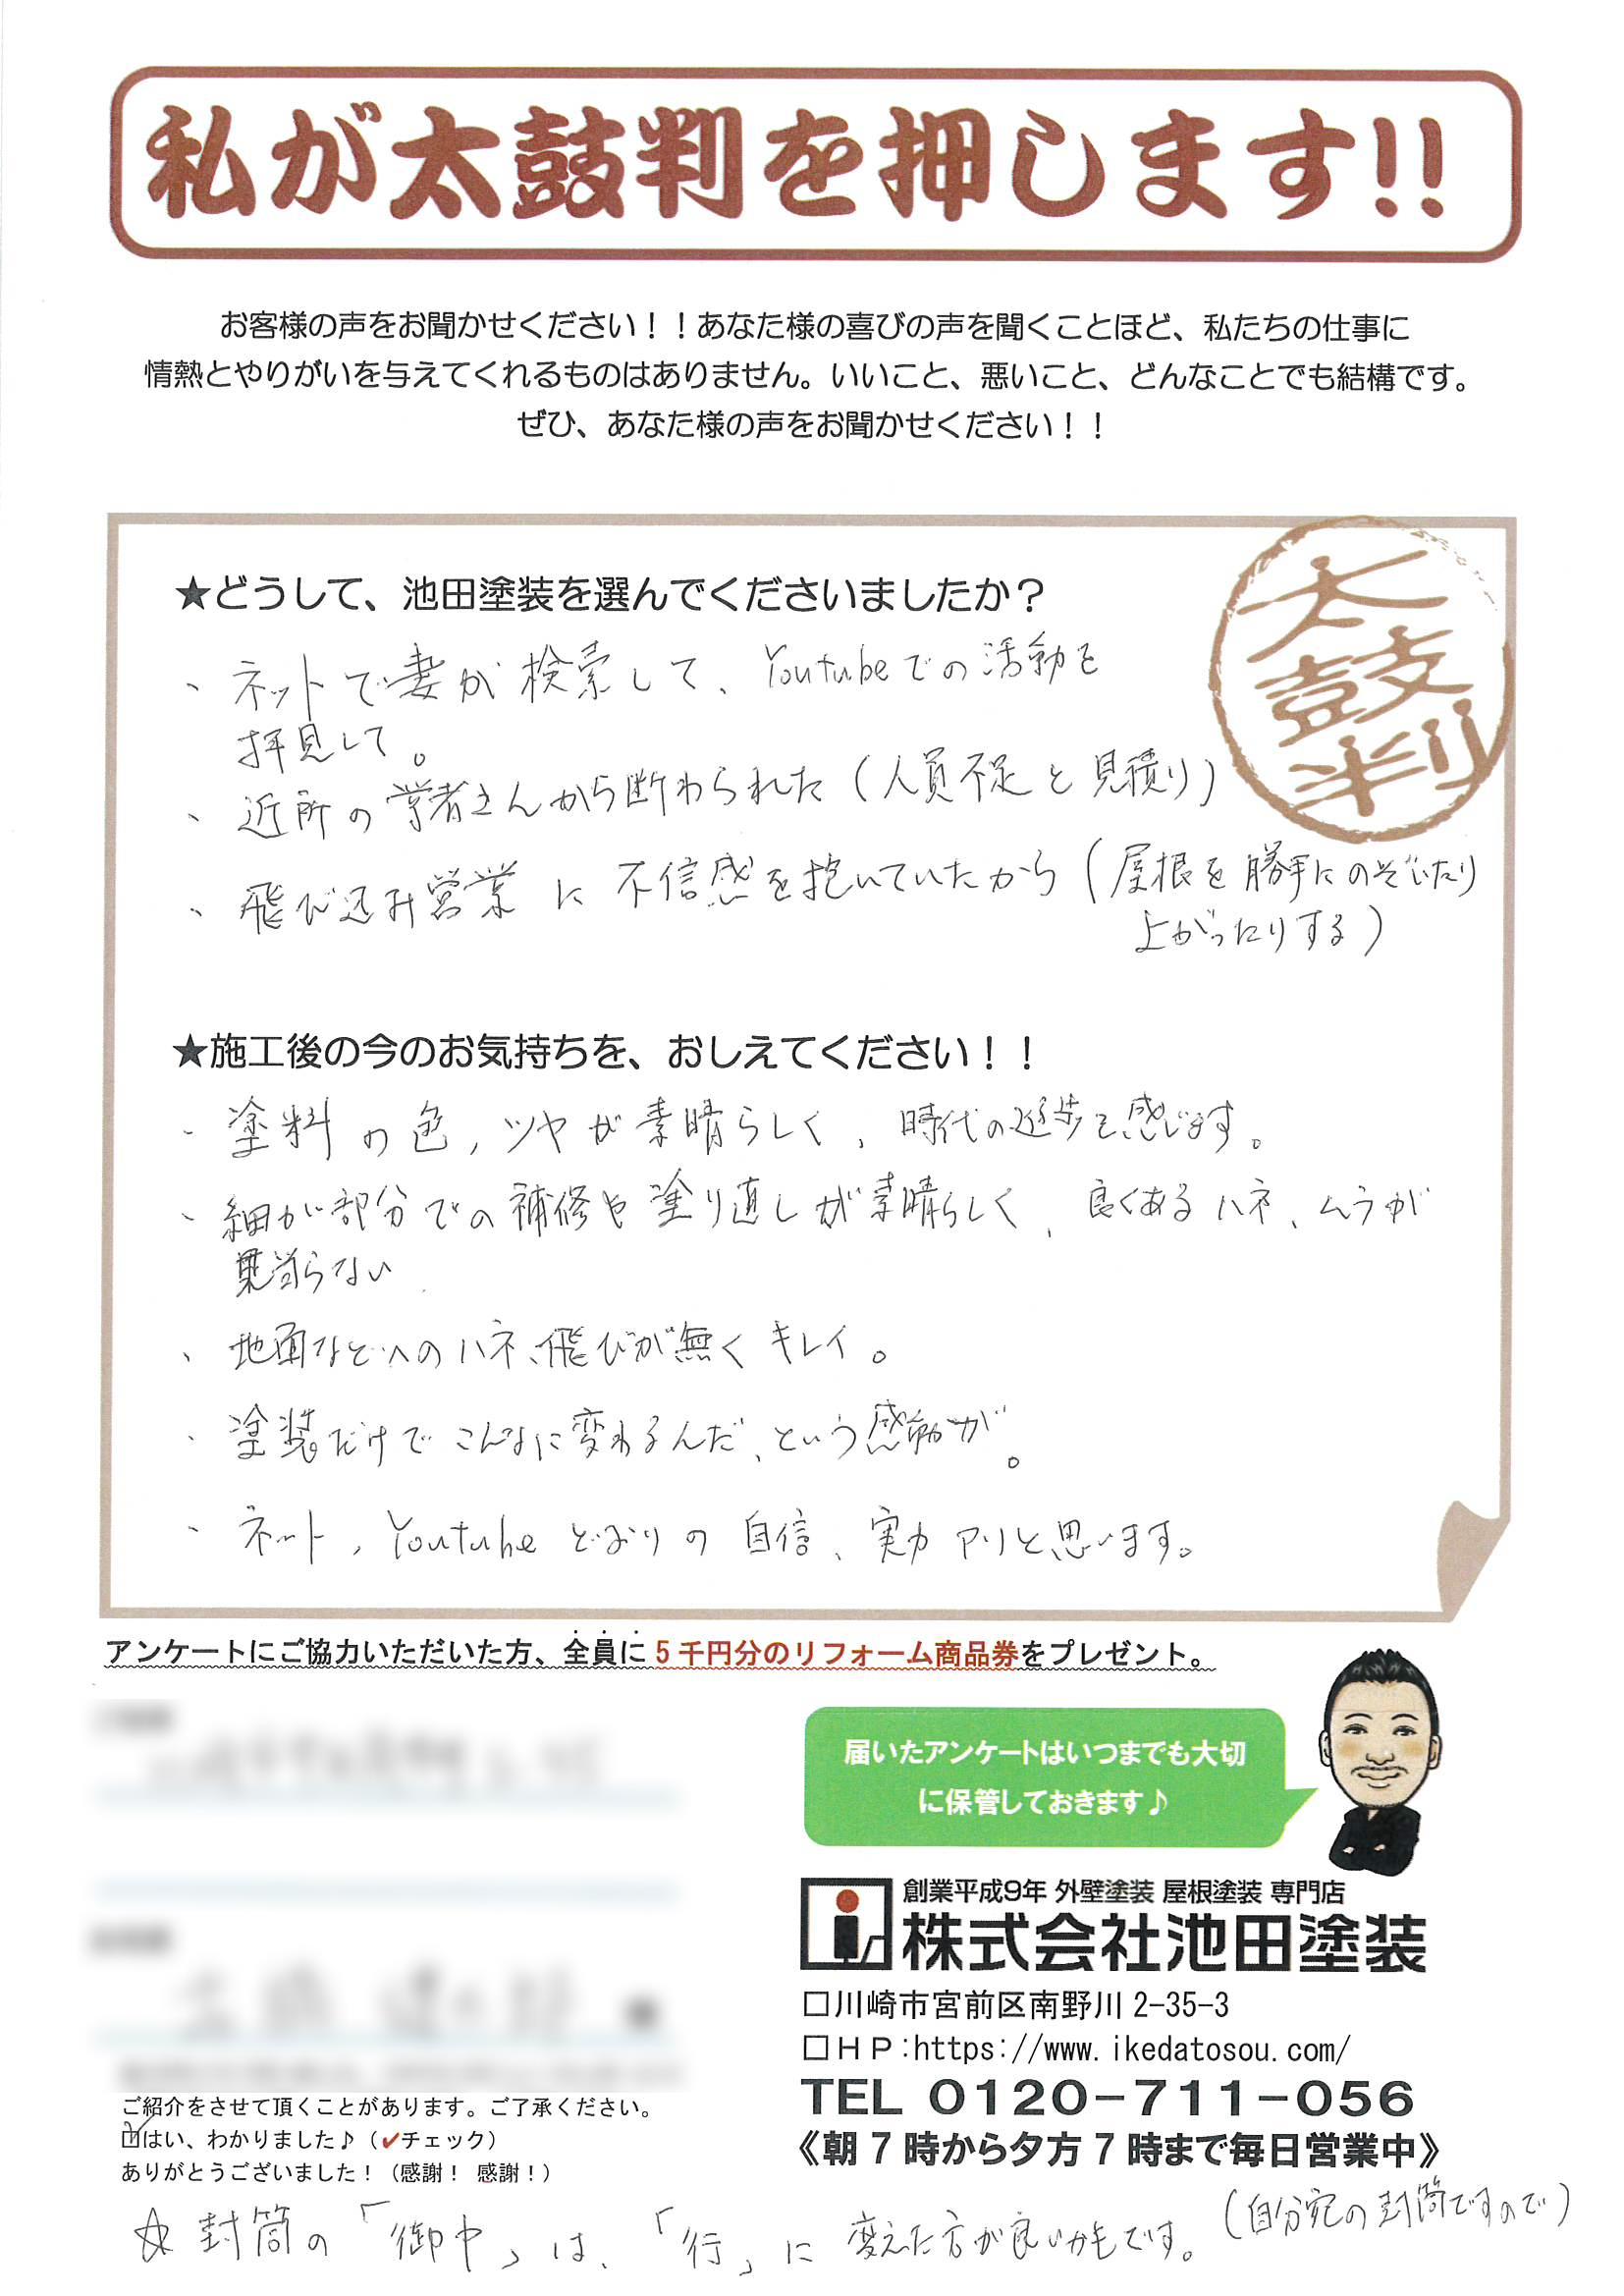 私が太鼓判を押します!!
お客様の声をお聞かせください！！あなた様の喜びの声を聞くことほど、私たちの仕事に
情熱とやりがいを与えてくれるものはありません。いいこと、悪いこと、どんなことでも結構です。
ぜひ、あなた様の声をお聞かせください！！
太鼓判
★どうして、池田塗装を選んでくださいましたか？
・ネットで妻が検索して、Youtubeでの活動を
拝見して。
・近所の学者さんから断わられた（人員不足と見積り）
・飛び込み営業に不信感を抱いていたから（屋根を勝手にのぞいたり
上がったりする）
★施工後の今のお気持ちを、おしえてください！！
・塗料の色,ツヤが素晴らしく、時代の進歩を感じます。
・細か部分での補修や塗り直しが素晴らしく、良くあるハネ、ムラが
見当らない
・地面などへのハネ、飛びが無くキレイ。
・塗装だけでこんなに変わるんだ、という感動が。
・ネット,Youtubeどおりの自信、実力アリと思います。
アンケートにご協力いただいた方、全員に5千円分のリフォーム商品券をプレゼント。
届いたアンケートはいつまでも大切
に保管しておきます♪
創業平成9年 外壁塗装 屋根塗装 専門店
株式会社池田塗装
□川崎市宮前区南野川2-35-3
□ＨＰ:https://www.ikedatosou.com/
TEL 0120-711-056
《朝7時から夕方7時まで毎日営業中》
ご紹介をさせて頂くことがあります。ご了承ください。
☑はい、わかりました♪（✔チェック）
ありがとうございました！（感謝！ 感謝！）
☆封筒の「御中」は、「行」に変えた方が良いかもです。（自分宛の封筒ですので）